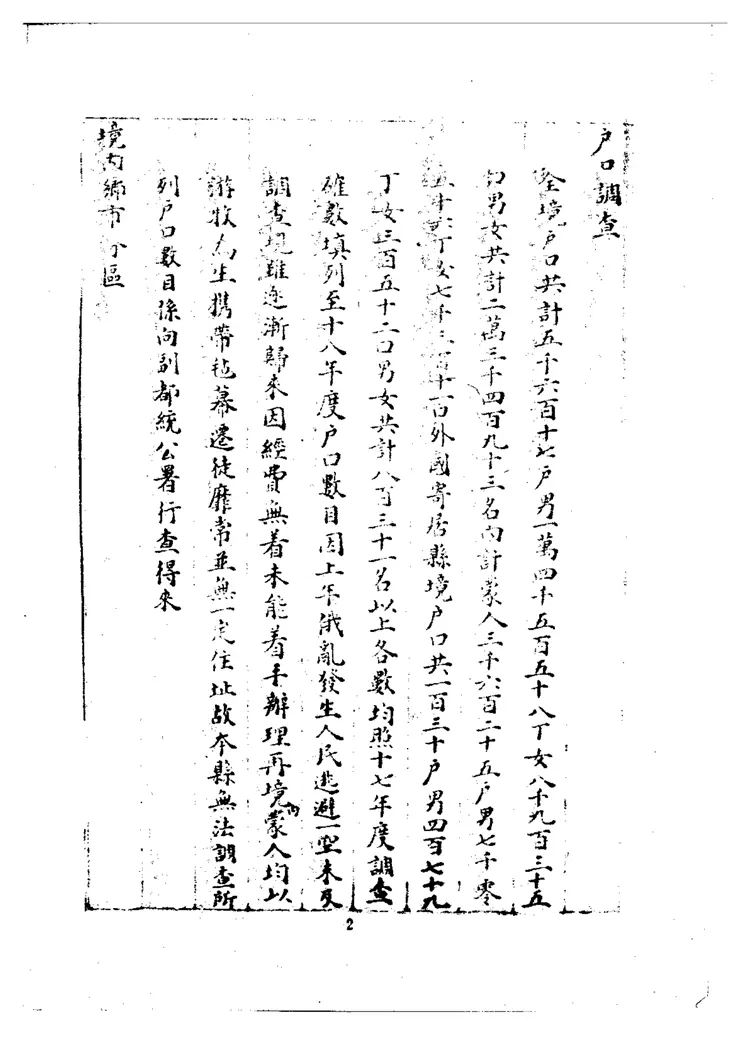 戶口調查
全境戶口共計五千六百十七戶男一萬四千五百五十八丁女八千九百三十五
口男女共計二萬三千四百九十三名內計蒙人三千六百二十五戶男七千零
五十六丁女七千三百十一口外國寄居縣境戶口共一百三十戶男四百七十九
丁女三百五十二口男女共計八百三十一名以上各數均照十七年度調查
確數填列至十八年度戶口數目因上年俄亂發生人民逃避一空未及
調查現雖逐漸歸來因經費無着未能着手辦理再境內蒙人均以
游牧為生攜帶毡幕遷徙靡常並無一定住址故本縣無法調查所
列戶口數目係向副都統公署行查得來
境內鄉市分區
2